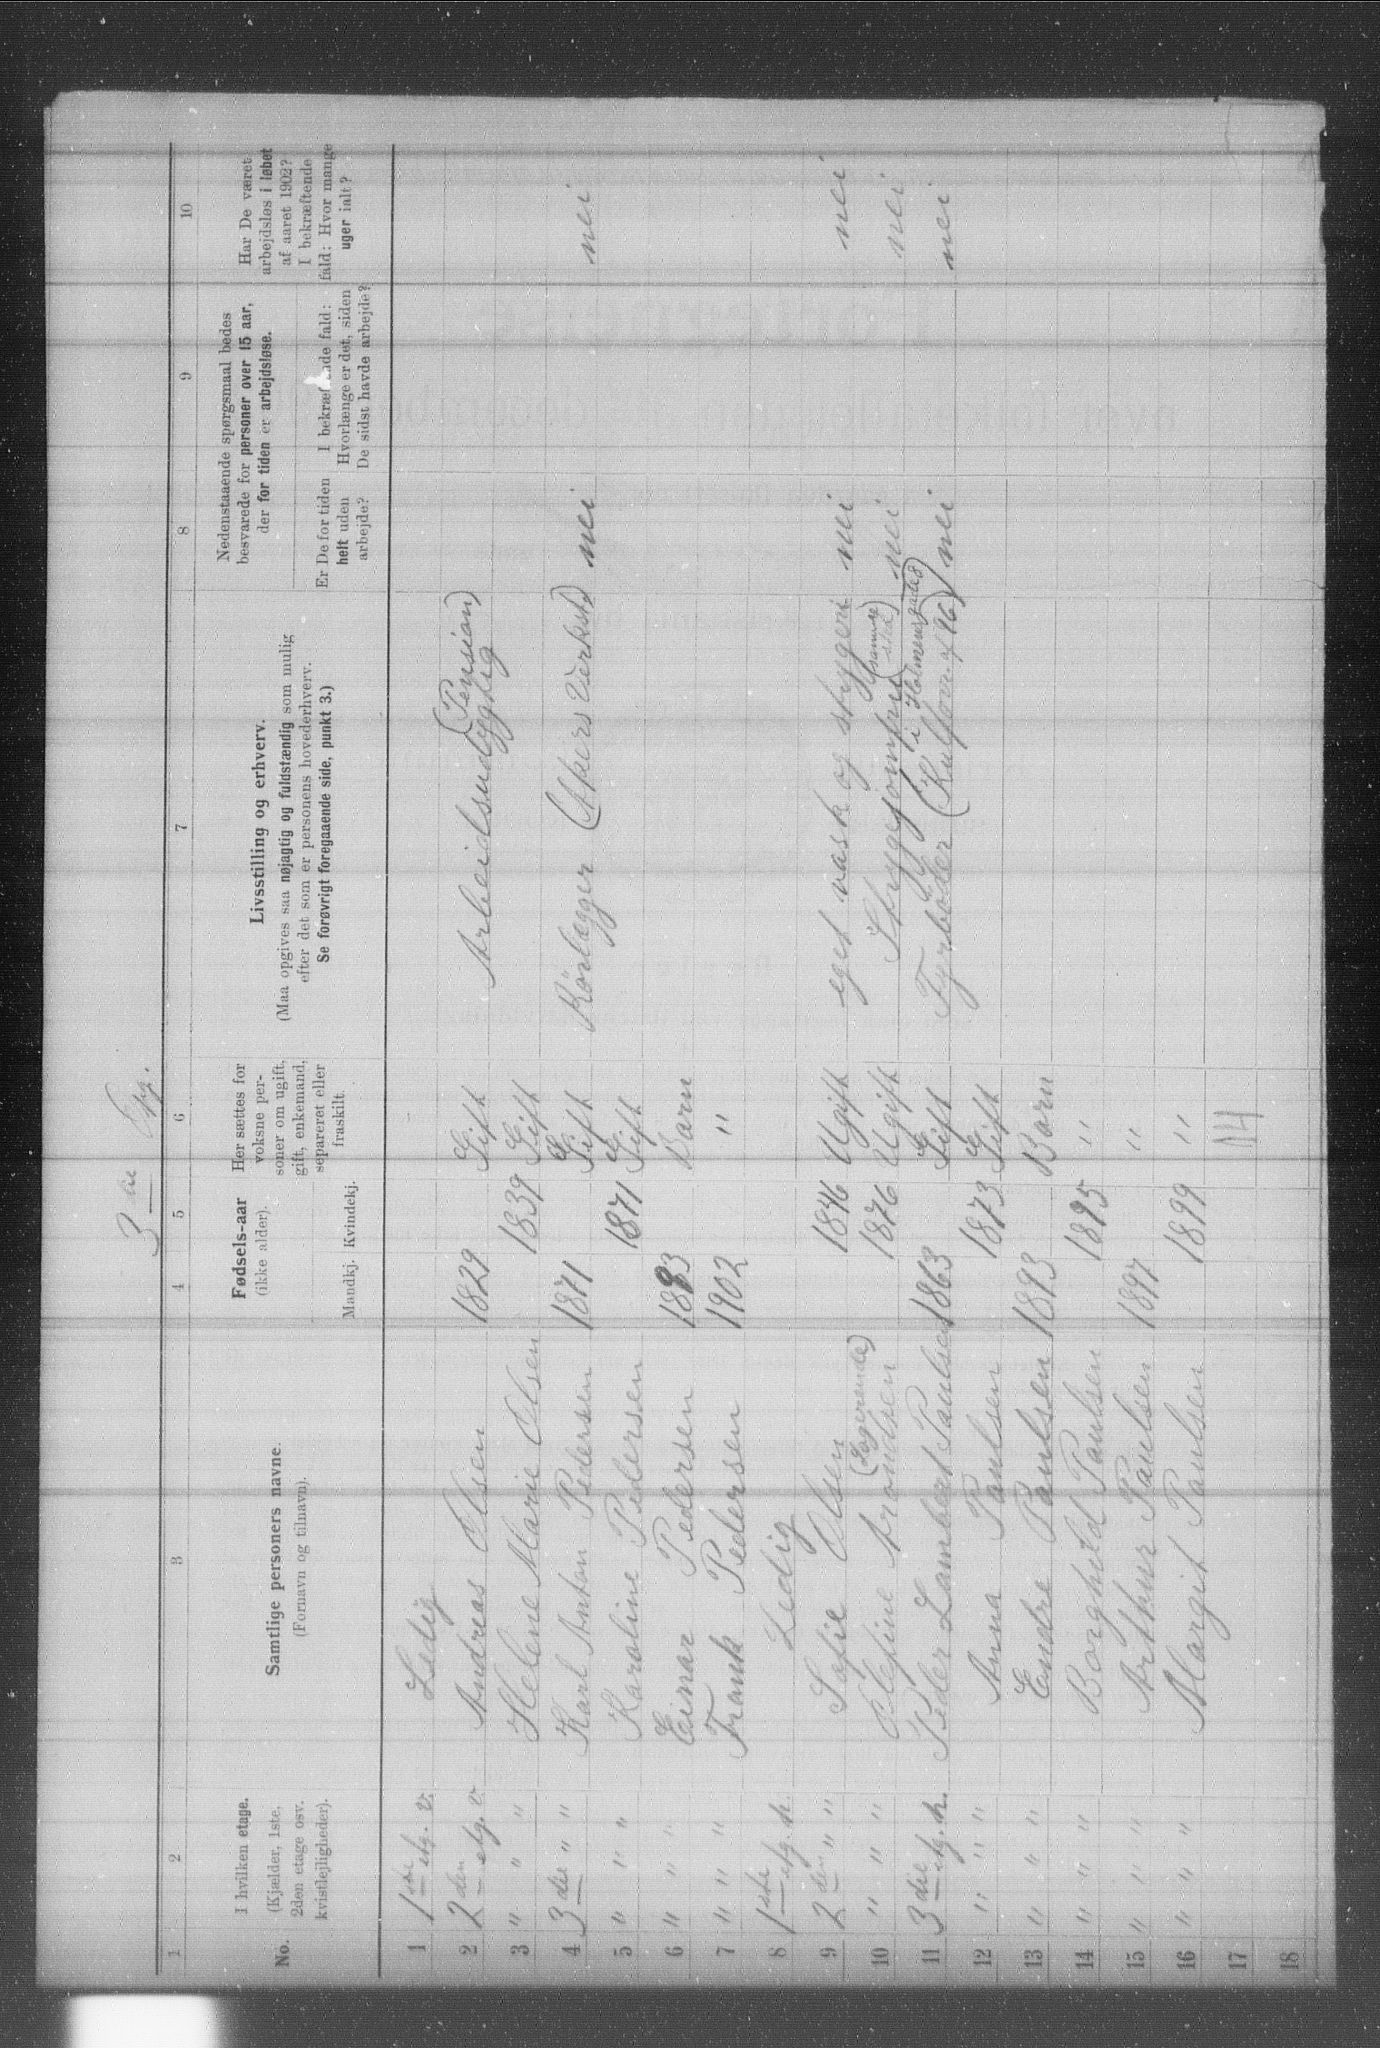 3
1 2 3 4 5 6 7 8 9 10
No.
I hvilken etage.
(Kjælder, 1ste, 2den etage osv. kvistlejligheder).
Samtlige personers navne.
(Fornavn og tilnavn).
Fødsels-aar
(ikke alder).
Mandkj. Kvindekj.
Her sættes for voksne personer om ugift, gift, enkemand, separeret eller fraskilt.
Livsstilling og erhverv.
(Maa opgives saa nøjagtig og fuldstændig som mulig
efter det som er personens hovederhverv.
Se forøvrigt foregaaende side, punkt 3.)
Nedenstaaende spørgsmaal bedes
besvarede for personer over 15 aar,
der for tiden er arbejdsløse.
Er De for tiden helt uden arbejde?
I bekræftende fald: Hvorlænge er det, siden De sidst havde arbejde?
Har De været arbejdsløs i løbet af aaret 1902? I bekræftende fald: Hvor mange uger ialt?
1 1ste etg. v. Ledig
2 2den etg. v. Andreas Olsen 1829 Gift Arbeidsudygtig (Pension)
3 " " " Helene Marie Olsen 1839 Gift
4 3die " " Karl Anton Pedersen 1871 Gift Rörlægger (Akers Værksted) nei nei
5 " " " Karoline Pedersen 1871 Gift
6 " " " Einar Pedersen 1893 Barn
7 " " " Frank Pedersen 1902 "
8 1ste etg. h. Ledig
9 2den " " Sofie Olsen 1846 Ugift eget vask og strygeri nei nei
10 " " " Olefine Arondsen (Logerende) 1876 Ugift Strygejomfru (samme sted) nei nei
11 3die etg. h. Peder Lambert Paulsen 1863 Gift Fyrbøder (Kulforr. af 96) i Holmensgade 8 nei nei
12 " " " Anna Paulsen 1873 Gift
13 " " " Endre Paulsen 1893 Barn
14 " " " Borghild Paulsen 1895 "
15 " " " Arthur Paulsen 1897 "
16 " " " Margit Paulsen 1899 "
17 14
18